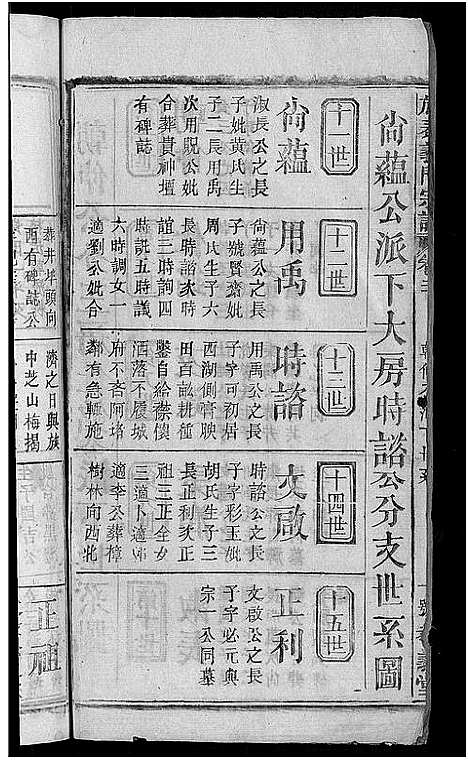 尙蘊公派下大房時諮公分支世系圖
十一世
尙蘊
淑長公之長
子妣黃氏生
子二長用禹
次用睨公妣
合葬貴神壇
有碑誌
十二世
用禹
尙蘊公之長
子號賢齋妣
周氏生子六
長時諮次時
誼三時詢四
時訊五時議
六時調女一
適劉公妣合
葬井坪頭向
酉有碑誌公
十三世
時諮
用禹公之長
子字可初居
西湖側膏腴
田百畝耕種
鑿自給襟懷
洒落不履城
府不吝阿堵
鄰有急輒施
濟之日與族
中芝山梅揭
十四世
文啟
時諮公之長
子字彩玉妣
胡氏生子三
長正利次正
祖三正全女
三適卜適
適李公葬樟
樹林向西北
十五世
正利
文啟公之長
子字必元與
宗一公同墓
正祖